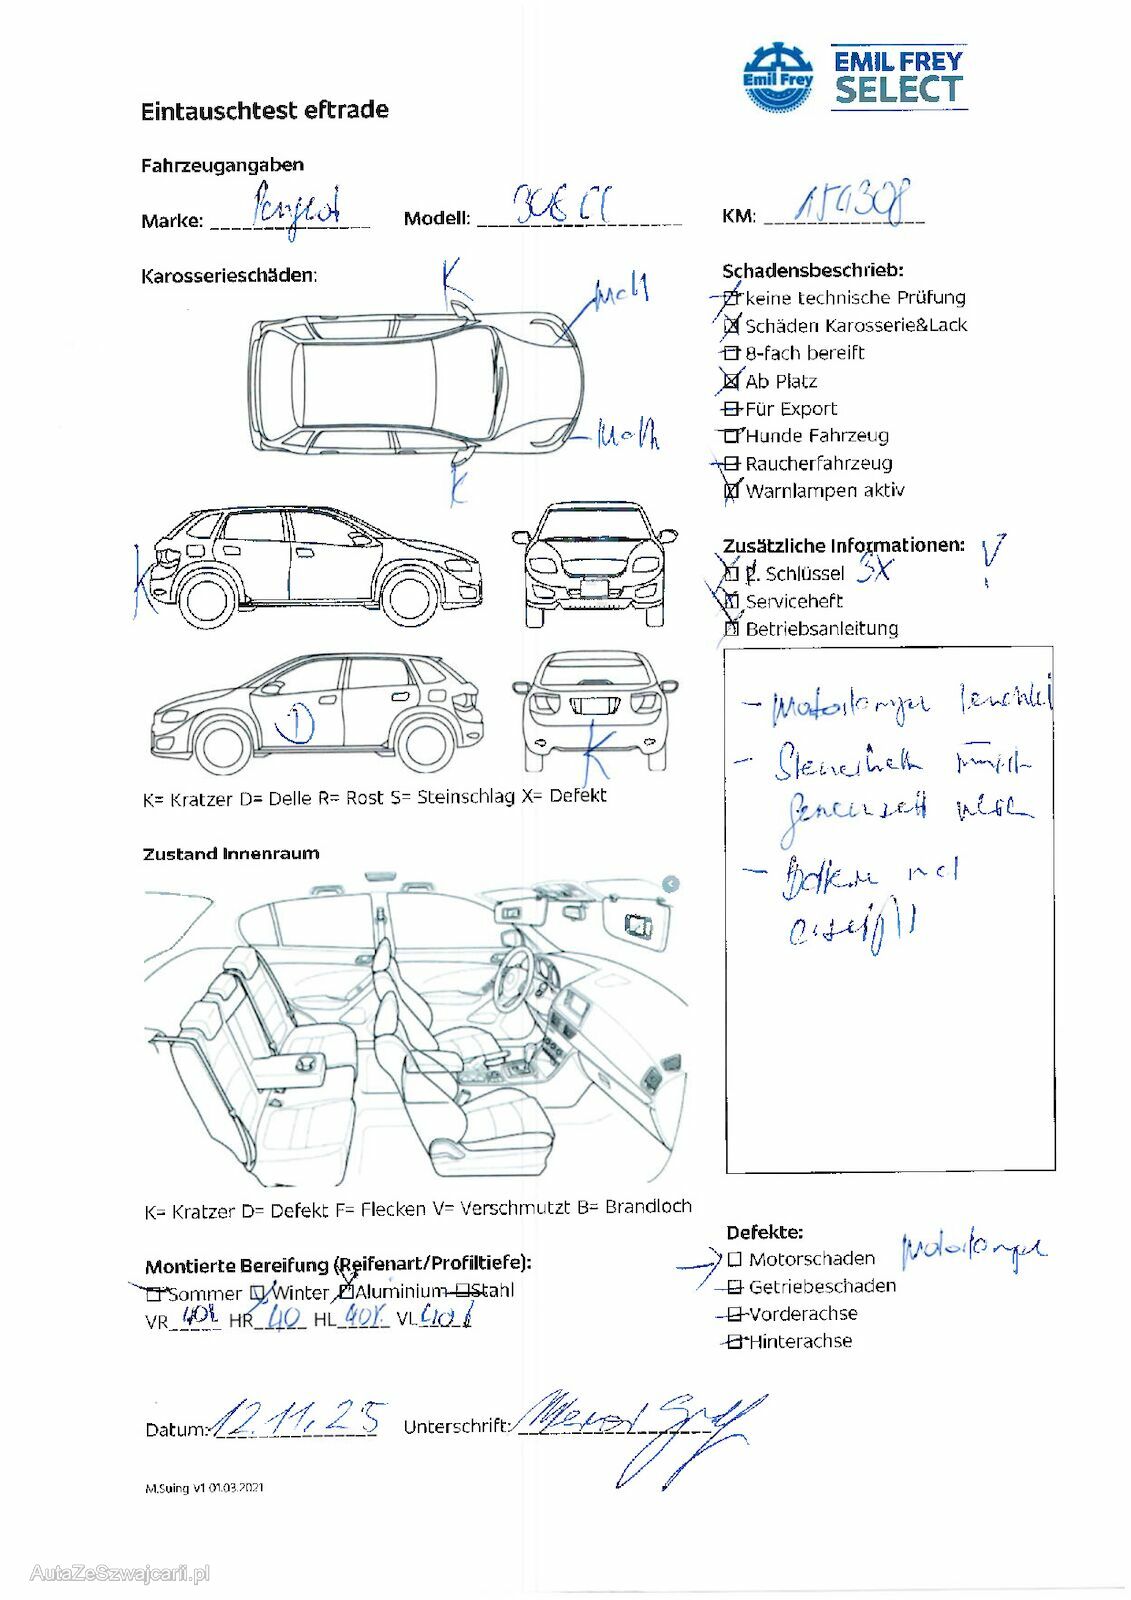 EMIL FREY
SELECT
Emil Frey
Eintauschtest eftrade
Fahrzeugangaben
Marke: Peugeot Modell: 306 CC KM: 154308
Karosserieschäden:
K
Matt
Matt
K
K
D
K
K= Kratzer D= Delle R= Rost S= Steinschlag X= Defekt
Schadensbeschrieb:
keine technische Prüfung
Schäden Karosserie&Lack
8-fach bereift
Ab Platz
Für Export
Hunde Fahrzeug
Raucherfahrzeug
Warnlampen aktiv
Zusätzliche Informationen:
2. Schlüssel 3x
Serviceheft
Betriebsanleitung
- Motorlampe leuchtet
-
-
Zustand Innenraum
K= Kratzer D= Defekt F= Flecken V= Verschmutzt B= Brandloch
Montierte Bereifung (Reifenart/Profiltiefe):
Sommer Winter Aluminium Stahl
VR 40% HR 40 HL 40% VL 40%
Defekte:
Motorschaden Motorlampe
Getriebeschaden
Vorderachse
Hinterachse
Datum: 12.11.25 Unterschrift:
M.Suing v1 01.03.2021
AutaZeSzwajcarii.pl